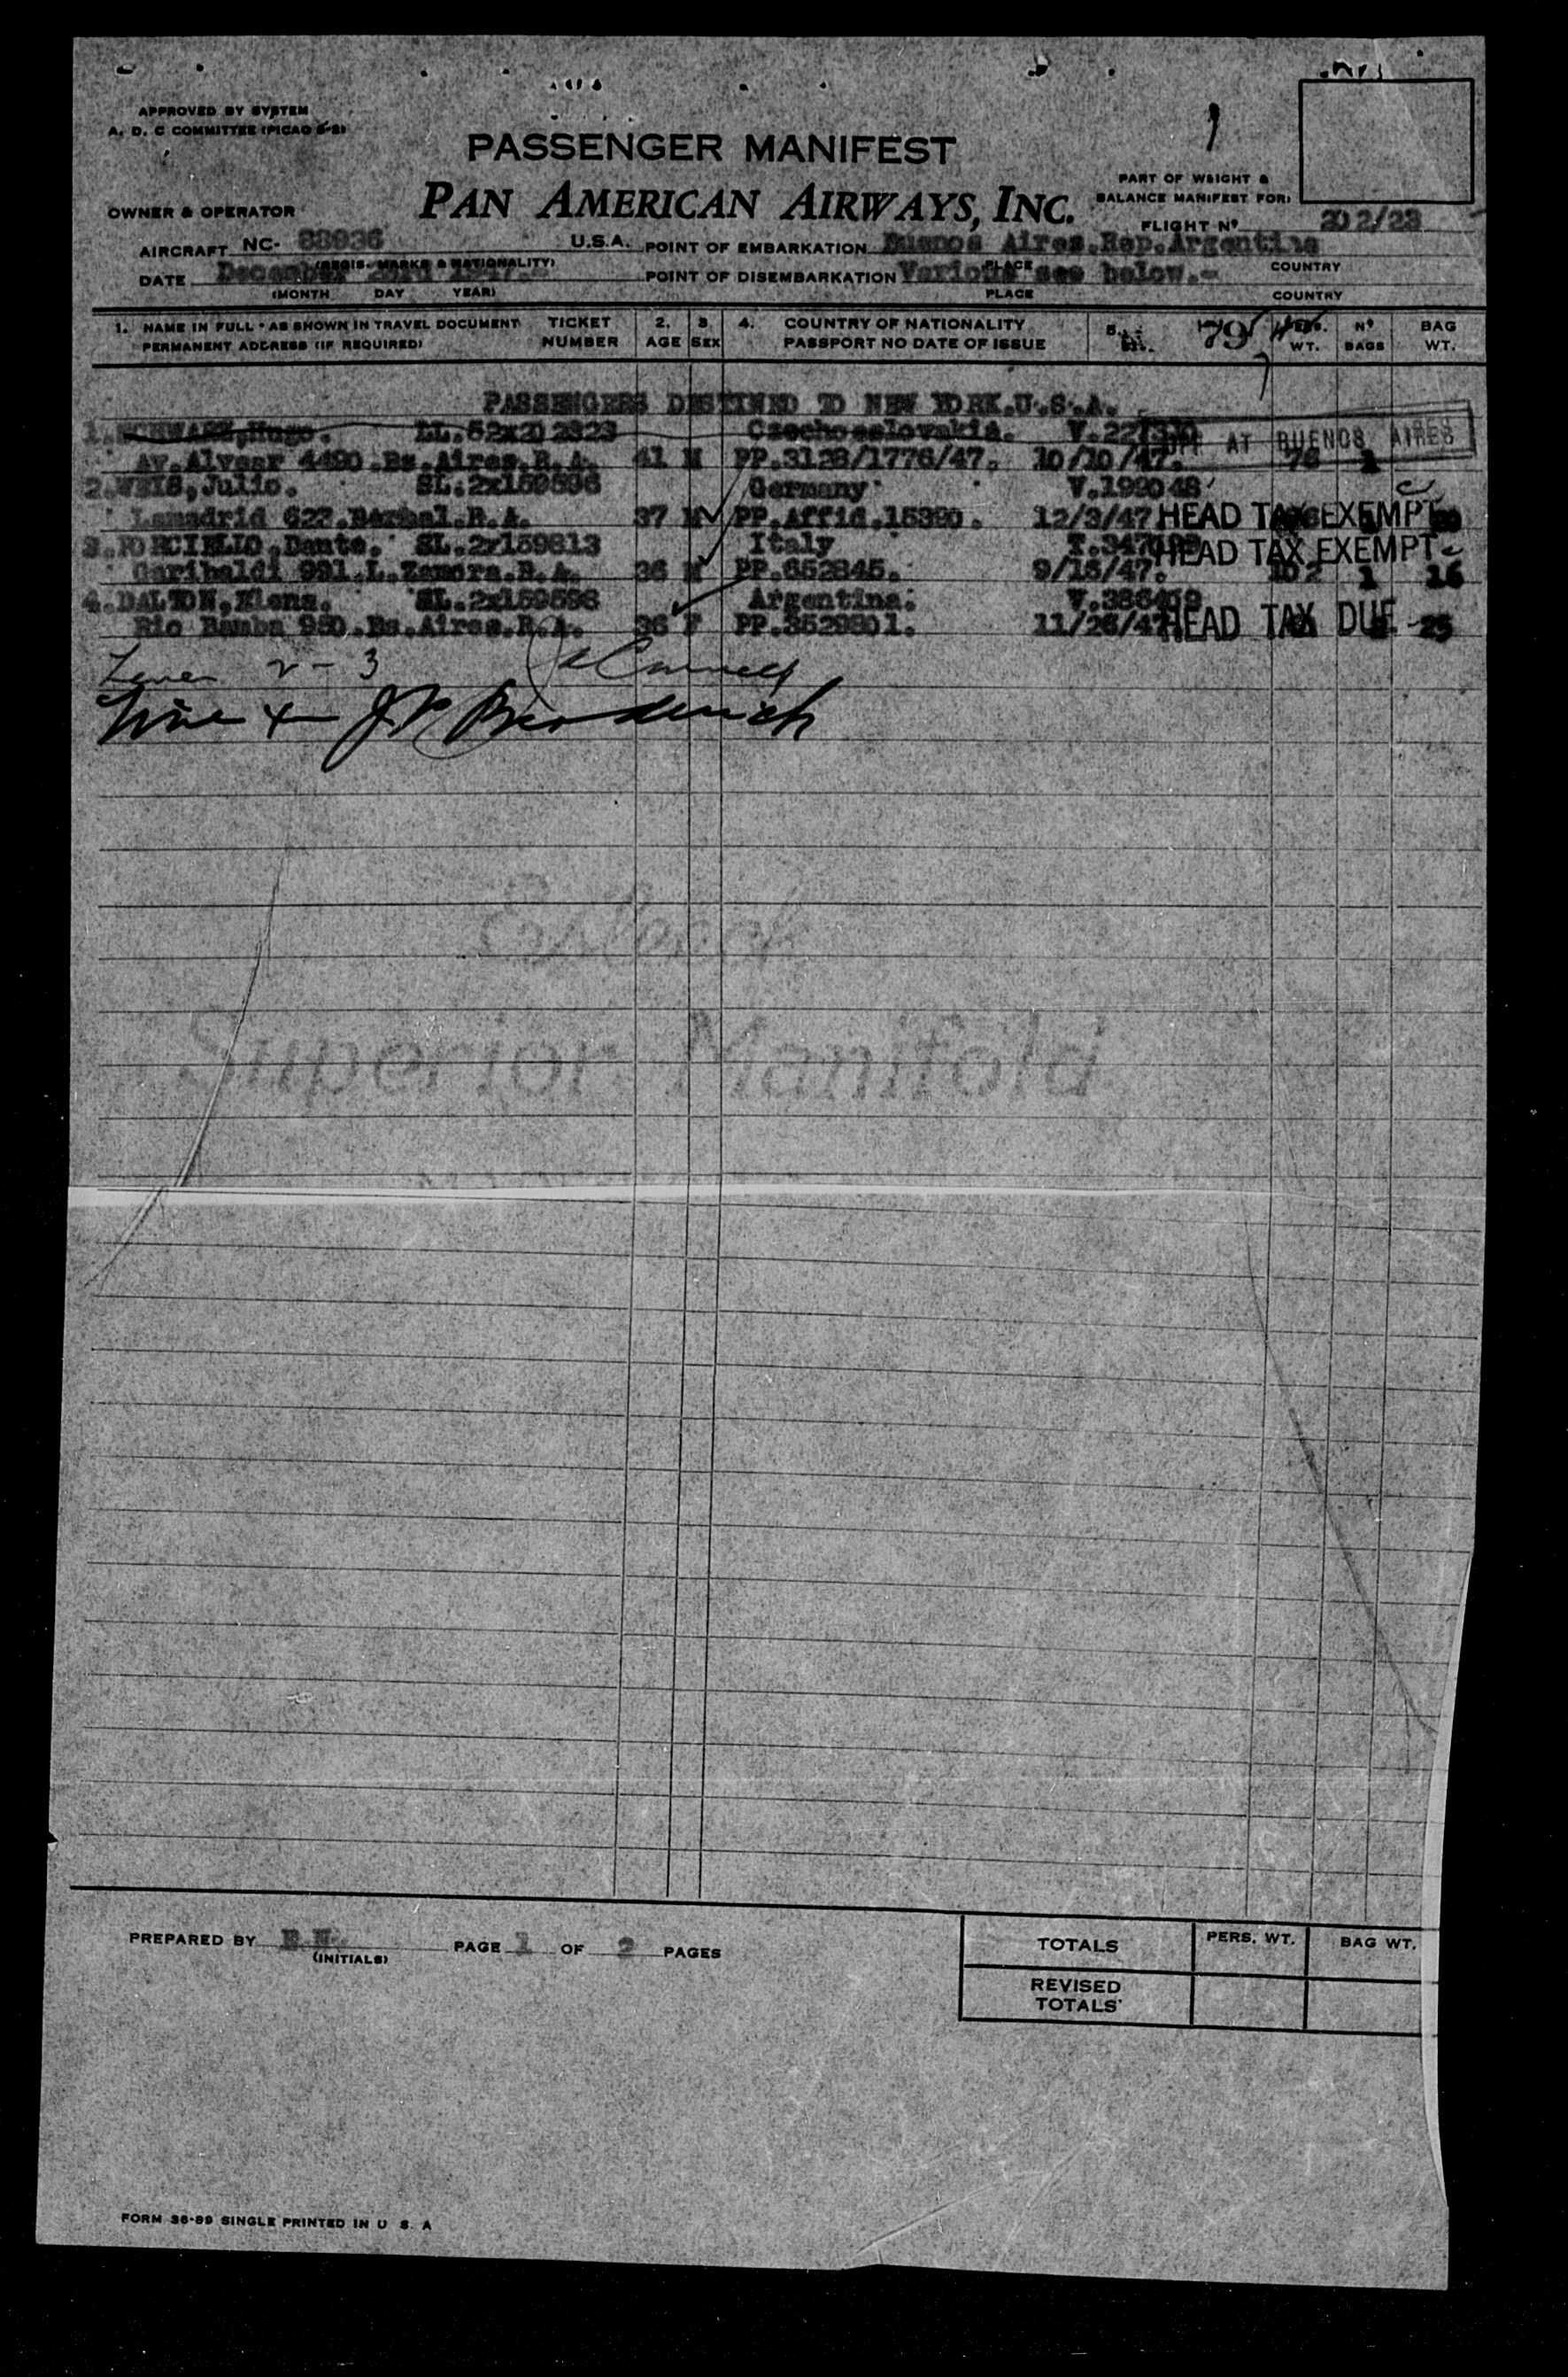 APPROVED BY SYSTEM
A. D. C COMMITTEE (PICAO 5-8)
PASSENGER MANIFEST
PAN AMERICAN AIRWAYS, INC.
PART OF WEIGHT &
BALANCE MANIFEST FOR:
OWNER & OPERATOR
FLIGHT Nº 202/23
AIRCRAFT NC- 88936 U.S.A.
(REGIS. MARKS & NATIONALITY)
POINT OF EMBARKATION Buenos Aires.Rep.Argentina
PLACE COUNTRY
DATE December 1947.-
(MONTH DAY YEAR)
POINT OF DISEMBARKATION Various see below.-
PLACE COUNTRY
1. NAME IN FULL - AS SHOWN IN TRAVEL DOCUMENT TICKET 2. 3. 4. COUNTRY OF NATIONALITY 5. 795 PERS. Nº BAG
PERMANENT ADDRESS (IF REQUIRED) NUMBER AGE SEX PASSPORT NO DATE OF ISSUE WT. BAGS WT.
PASSENGERS DESTINED TO NEW YORK.U.S.A.
1.SCHWARZ,Hugo. LL.52x202823 Czechoeslovakia. AT BUENOS AIRES
Av.Alvear 4490.Bs.Aires.R.A. 41 M PP.3128/1776/47. 10/10/47. 1
2.WEIS,Julio. SL.2x159596 Germany V.199048
Lamadrid 622. R.A. 37 M PP.Affid.15390. 12/3/47 HEAD TAX EXEMPT
3.PORCIELLO,Dante. SL.2x159613 Italy HEAD TAX EXEMPT
Garibaldi 991.L.Zamora.R.A. 36 M PP.652845. 9/15/47. 102 1 16
4.DALTON,Elena. SL.2x159598 Argentina. V.386419
Rio Bamba 950.Bs.Aires.R.A. 36 F PP.3529801. 11/26/47 HEAD TAX DUE 25
2 - 3
Line 4 J. Broderick
Superior Manifold
PREPARED BY
(INITIALS)
PAGE 1 OF 2 PAGES
TOTALS PERS. WT. BAG WT.
REVISED
TOTALS
FORM 36-89 SINGLE PRINTED IN U S. A